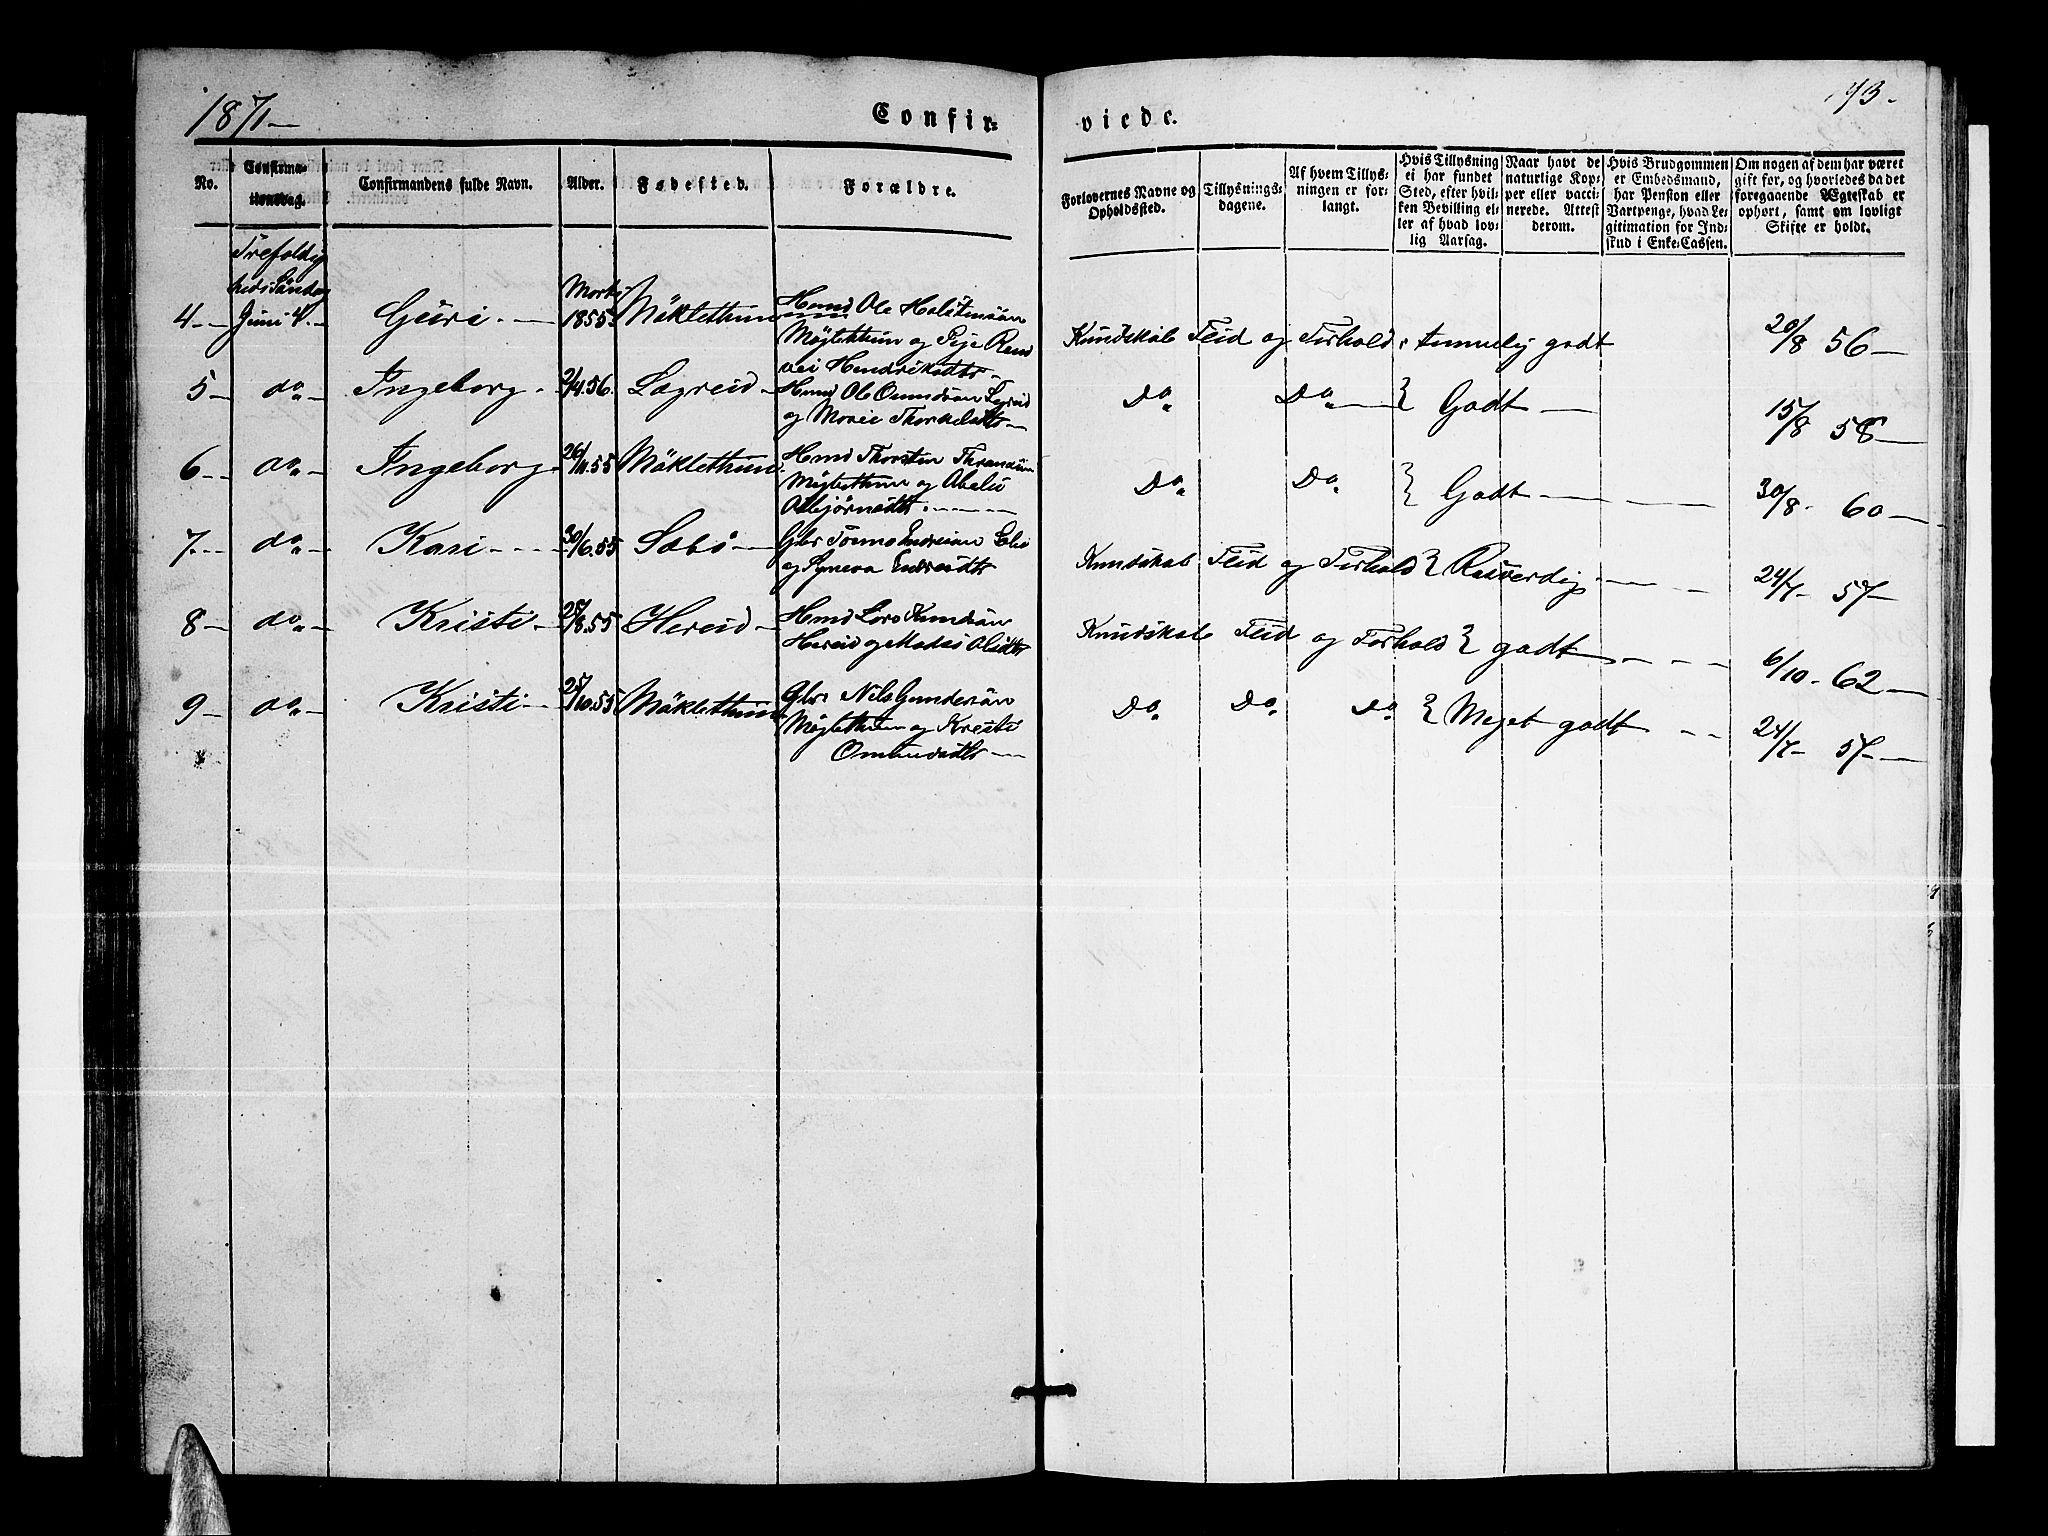 1871 —
Confir=
viede.
73.
No.
Confirma=
tionsdag.
Confirmandens fulde Navn.
Alder.
Fødested.
Forældre.
Forlovernes Navne og
Opholdssted.
Tillysnings=
dagene.
Af hvem Tillys=
ningen er for=
langt.
Hvis Tillysning
ei har fundet
Sted, efter hvil=
ken Bevilling el=
ler af hvad lov=
lig Aarsag.
Naar havt de
naturlige Kop=
per eller vacci=
nerede. Attest
derom.
Hvis Brudgommen
er Embedsmand,
har Pension eller
Vartpenge, hvad Le=
gitimation for Ind=
skud i Enke=Cassen.
Om nogen af dem har været
gift før, og hvorledes da det
foregaaende Ægteskab er
ophørt, samt om lovligt
Skifte er holdt.
Trefoldig
heds Søndag
4 — Juni 4. — Guri. — Marts 1855. Möklethun Hmd Ole
Mögletthun og Pige
Hendriksdtr —
Kundskab Flid og Forhold: temmelig godt 20/8 56 —
5 — do — Ingeborg. 2/4.56. Lægreid — Hmd Ole Omundsön Legreid
og Thorkelsdtr —
Do Do — } Godt — 15/8 58 —
6 — do — Ingeborg. 26/11.55 Mökletthun. Hmd Thorsten
Möglethun og
Asbjørnsdtr. —
Do Do } Godt — 30/8 - 60 —
7 — do — Kari. — 30/6.55 Sæbö — Gbr
og Synneva
Kundskab Flid og Forhold } Roesværdig. — 24/7 - 57 —
8 — do — Kristi — 25/8.55 Hereid — Hmd Lars Knudsön
Hereid og Olsdtr
Kundskab Flid og Forhold } godt — 6/10 - 62 —
9 — do — Kristi — 25/10.55 Möklethun Gbr Nils Gundersön
Möglethun og Kristi
Omundsdtr —
Do Do Do } Meget godt — 24/7 - 57 —